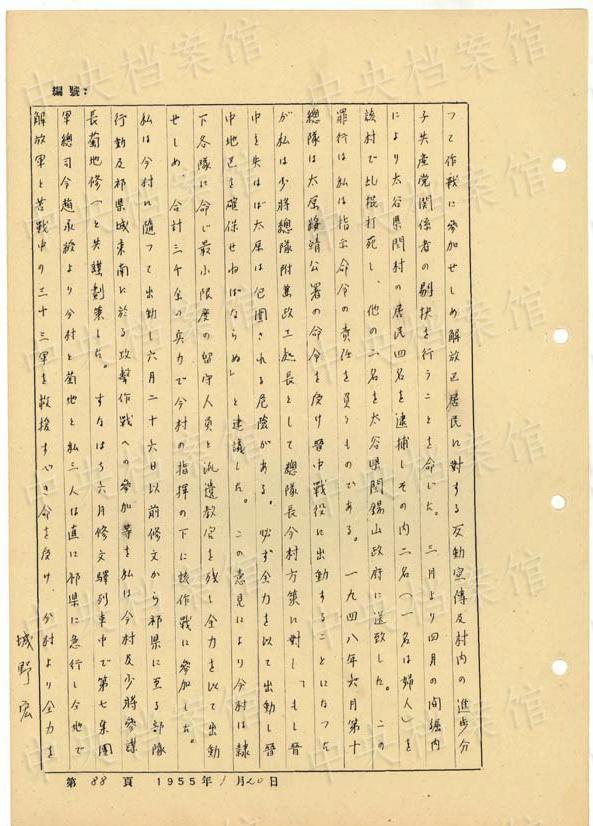 編號：
つて作戦に参加せしめ解放区居民に対する反動宣傳及村内の進歩分
子共産党関係者の剔抉を行うことを命じた。三月より四月の間堀内
により太谷県閻村の居民四名を逮捕しその内二名（一名は婦人）を
該村で乱棍打死し、他の二名を太谷県閻錫山政府に送致した。この
罪行は私は指示命令の責任を負うものである。一九四八年六月第十
總隊は太原綏靖公署の命令を受け晋中戦役に出動することになつた
が私は少將總隊附兼政工處長として總隊長今村方策に対し「もし晋
中を失はば太原は包囲される危険がある。必ず全力を以て出動し晋
中地区を確保せねばならぬ」と建議した。この意見により今村は隷
下各隊に命じ最小限度の留守人員と派遣教官を残し全力を以て出動
せしめ、合計三千余の兵力で今村の指揮の下に該作戦に参加した。
私は今村に随つて出動し六月二十六日以前修文から祁県に至る部隊
行動及祁県城東南に於る攻撃作戦への参加等を私は今村及少將参謀
長菊地修一と共謀劃策した。すなはち六月修文驛列車中で第七集團
軍總司令趙承綬より今村と菊地と私三人は直に祁県に急行し今地で
解放軍と苦戦中の三十三軍を救援すべき命を受け、今村より全力を
城野宏
第88頁 1955年1月20日
中央档案馆